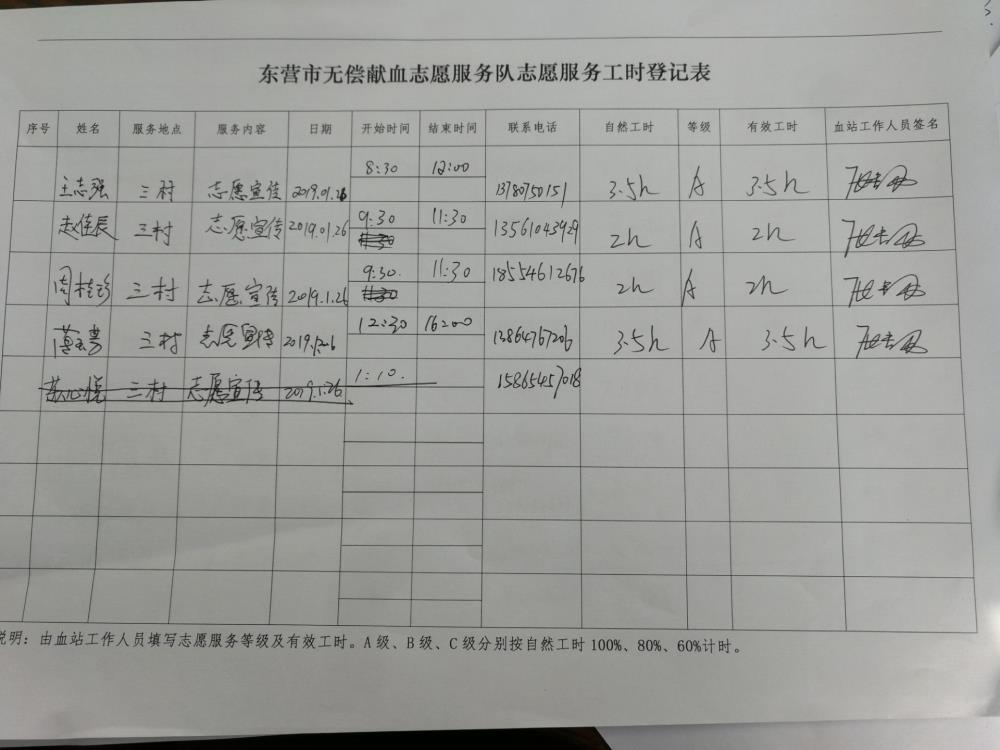 东营市无偿献血志愿服务队志愿服务工时登记表
序号 姓名 服务地点 服务内容 日期 开始时间 结束时间 联系电话 自然工时 等级 有效工时 血站工作人员签名
王志强 三村 志愿宣传 2019.01.26 8:30 12:00 13780750151 3.5h A 3.5h
赵佳辰 三村 志愿宣传 2019.01.26 9:30 11:30 13561043929 2h A 2h
周桂珍 三村 志愿宣传 2019.1.26 9:30. 11:30 18554612676 2h A 2h
三村 志愿宣传 12:30 16:00 13864767206 3.5h A 3.5h
三村 志愿宣传 2019.1.26 1:10. 15865457018
说明：由血站工作人员填写志愿服务等级及有效工时。A级、B级、C级分别按自然工时100%、80%、60%计时。